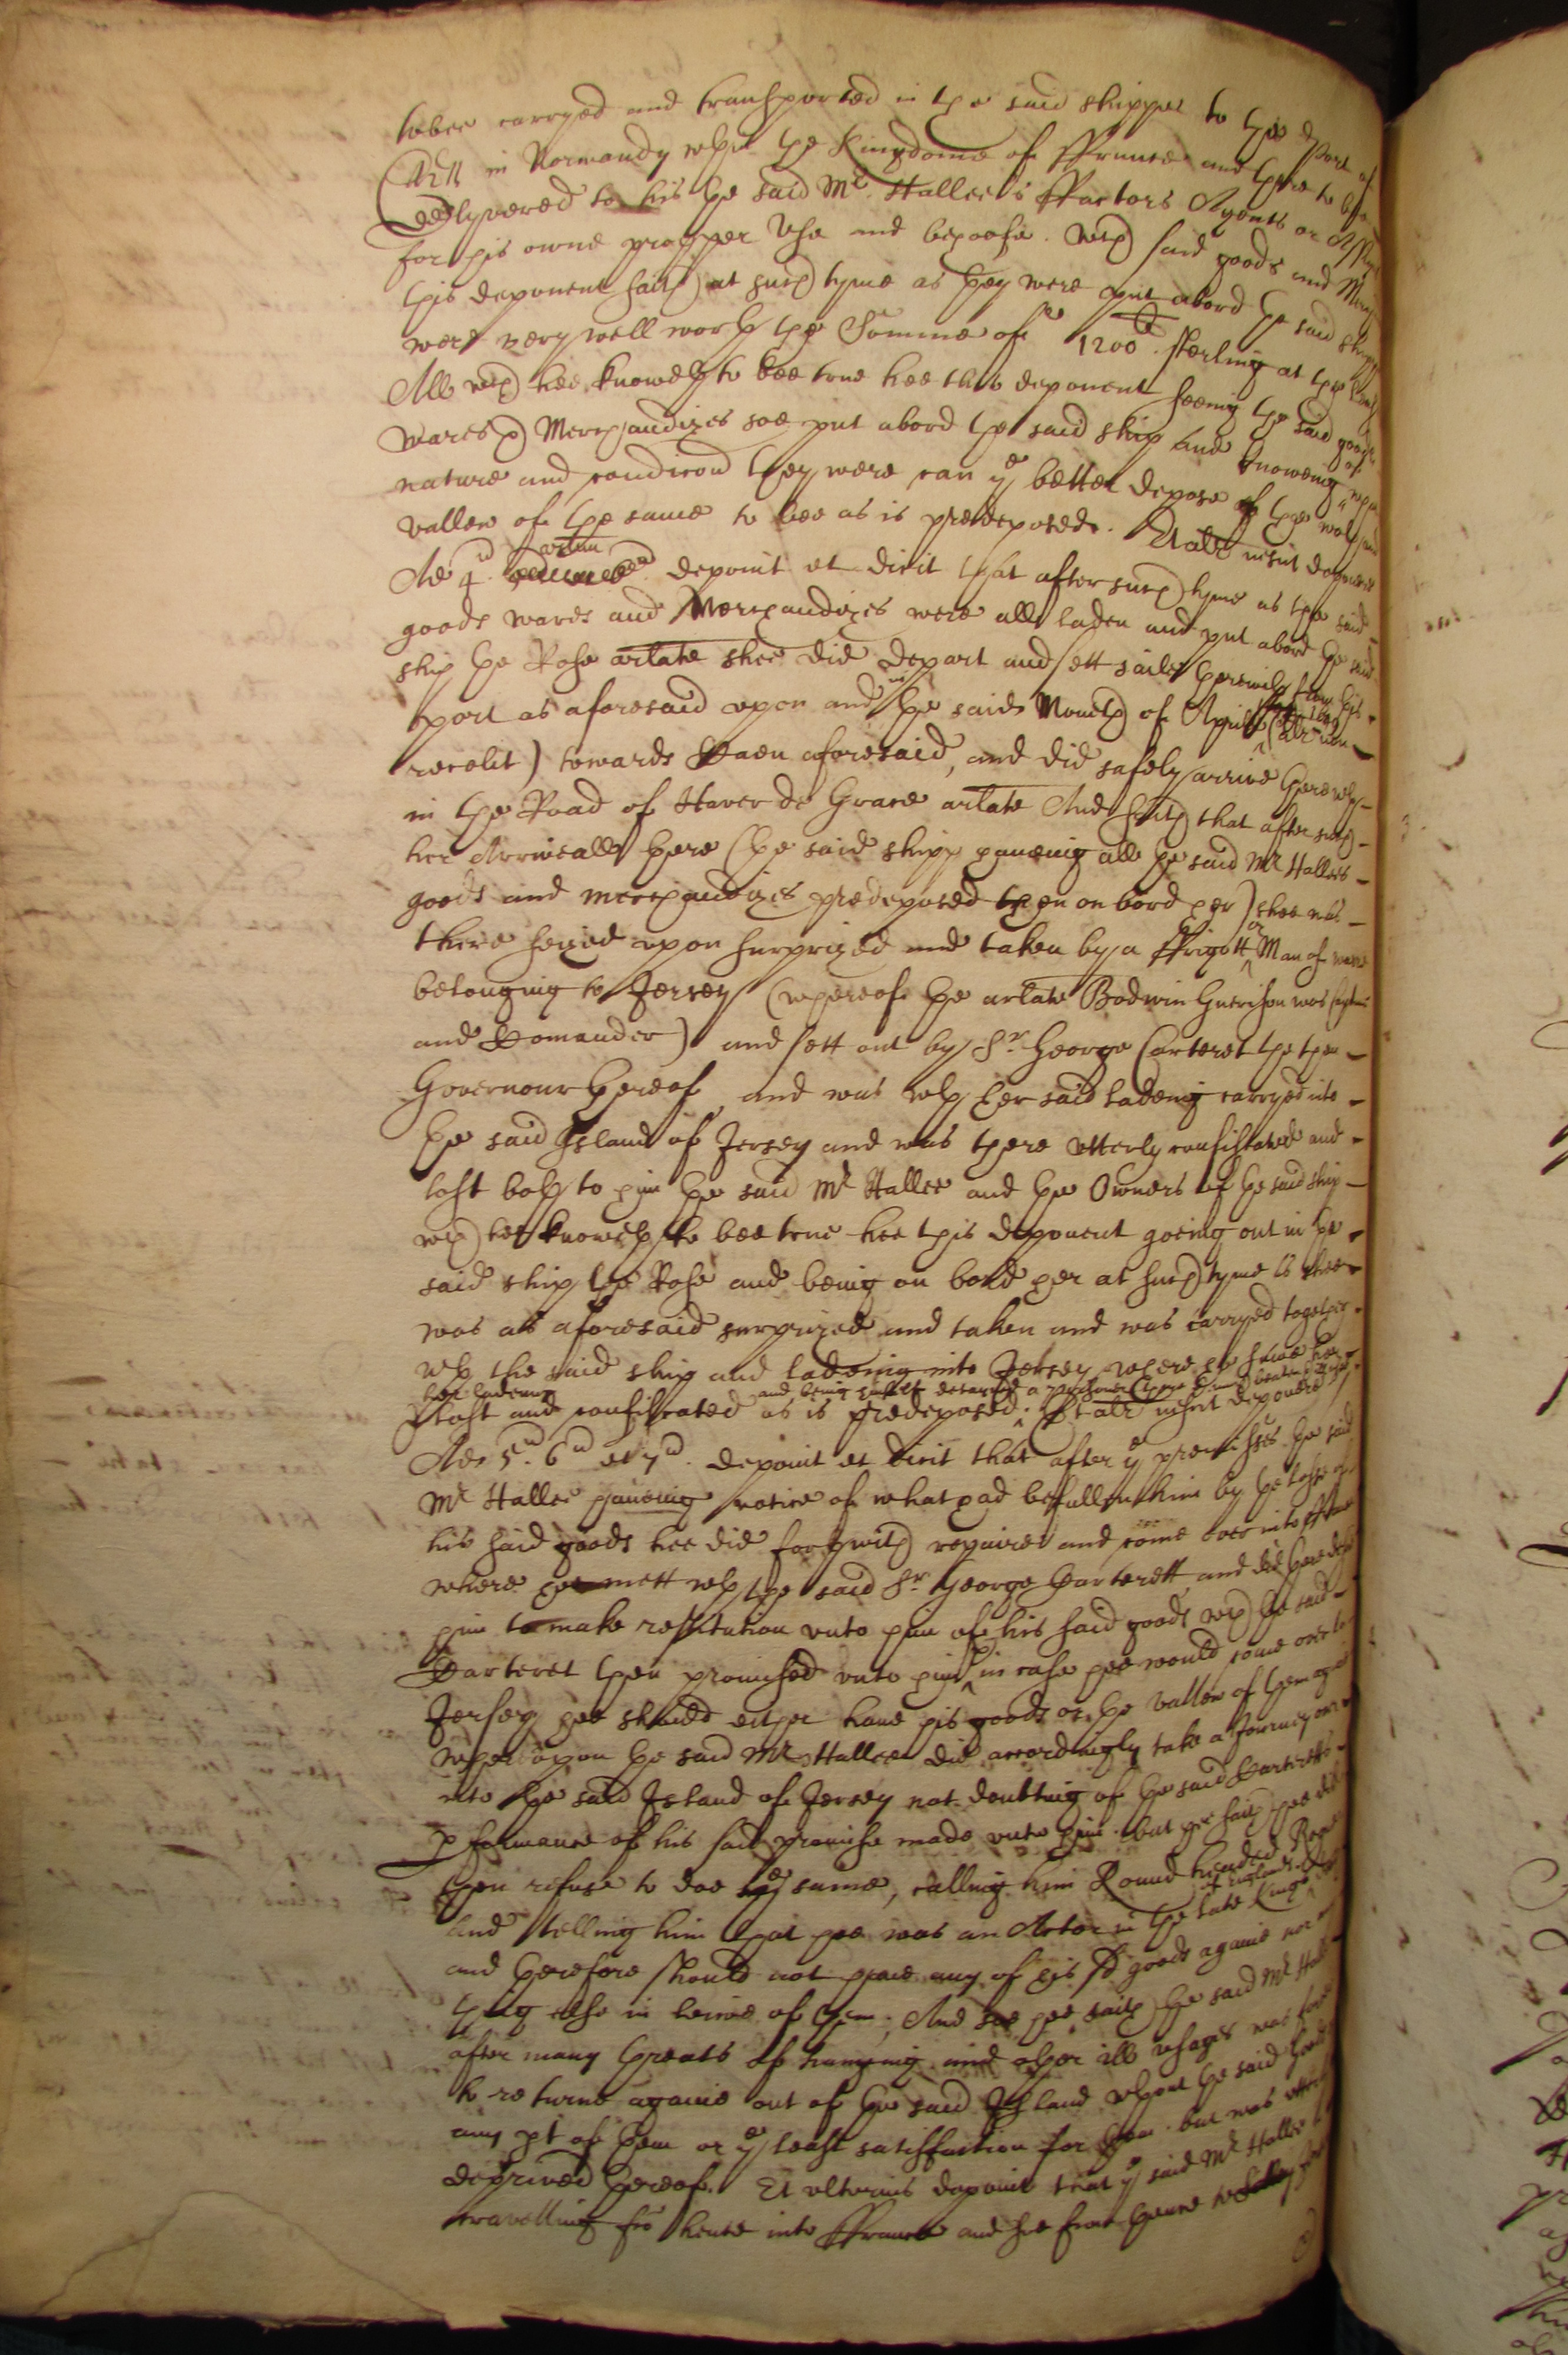 to bee carryed and transported in the said shippe to the Port of
Caen in Normandy wthin the Kingdome of ffrance and there to bee
delyvered to his the said Mr. Hallee's ffactors Agents or Assignes
for his owne propper Use and behoofe. wch said goods and
this deponent saith at such tyme as they were put abord the said shipp
were very well worth the Somme of 1200 li. sterling at the least
All wch hee knoweth to bee true hee this deponent seeing the said goods
wares & Merchandizes soe put abord the said ship and knoweing of
nature and condicon they were can ye better depose of the worth and
vallew of the same to bee as is predeposed. Et alr nescit deponere
Ad 4 artlum deponit et dicit that after such tyme as the said
goods wares and Merchandizes were all laden and put abord the said
ship the Rose arlate shee did depart and sett saile therewith from this
port as aforesaid upon and in the said Moneth of Aprill (alr non
recolit) towards Caen aforesaid, and did safely arrive therewth
in the Road of Haver de Grace arlate And saith that after such
her Arrivall there (the said shipp haveing all the said Mr Hallees
goods and merchandizes predeposed then on bord her) shee was
there seized upon surprized and taken by a ffrigott or Man of warr
belonging to Jersey (whereof the arlate Bodwin Guerison was Captaine
and Comander) and sett out by Sr. George Carteret the then
Governour thereof, and was wth her said ladeing carryed into
the said Island of Jersey and was there utterly confiscated and
lost both to him the said Mr Hallee and the Owners of the said ship
wch hee knoweth to bee true hee this deponent goeing out in the
said ship the Rose and being on bord her at such tyme as shee
was as aforesaid surprized and taken and was carryed together
wth the said ship and ladeing into Jersey where he sawe her
her ladeing and being himselfe detained a prisoner there
lost and confiscated as is predeposed. Et alr nescit deponere
Ad 5. 6 et 7. deponit et dicit that after ye premisses the said
Mr Hallee haveing notice of what had befallen him by the losse of
his said goods hee did forthwith repaire and come over into ffrance
where hee mett wth the said Sr George Carterett and did there desire
him to make restitution unto him of his said goods wch the said
Carteret then promised unto him, in case hee would come over to
Jersey hee should either have his goods or the vallew of them againe
whereupon the said Mr Hallee did accordingly take a Journey over
into the said Island of Jersey not doubting of the said Carteretts
pformance of his said promise made unto him. but hee saith hee did
then refuse to doe ye same, calling him Round headed Rogue
And telling him that hee was an Actor in the late Kings of Englands death
and therefore should not have any of his sd goods againe nor any
thing else in leiwe of them; And soe hee saith the said Mr Hallee
after many threats of hanging and other ill usages was forced
to returne againe out of the said Island wthout the said goods
any pt of them or ye least satisfaction for them. but was utterly
deprived thereof. Et ulterius deponit that ye said Mr Hallee
travelling fro hence into ffrance and soe from thence to Jersey